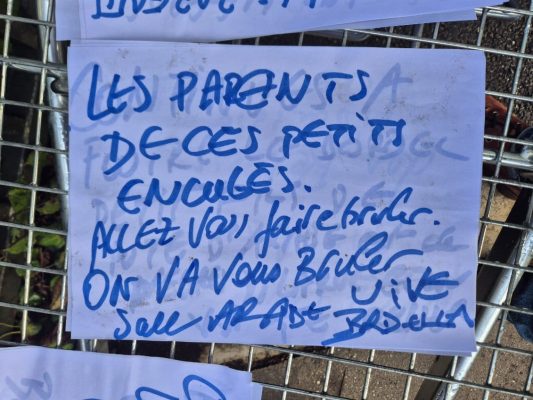 LES PARENTS
DE CES PETITS
ENCULÉS.
ALLEZ VOUS faire bruler.
ON VA VOUS BRULER
Sale ARABE VIVE
BARDELLA